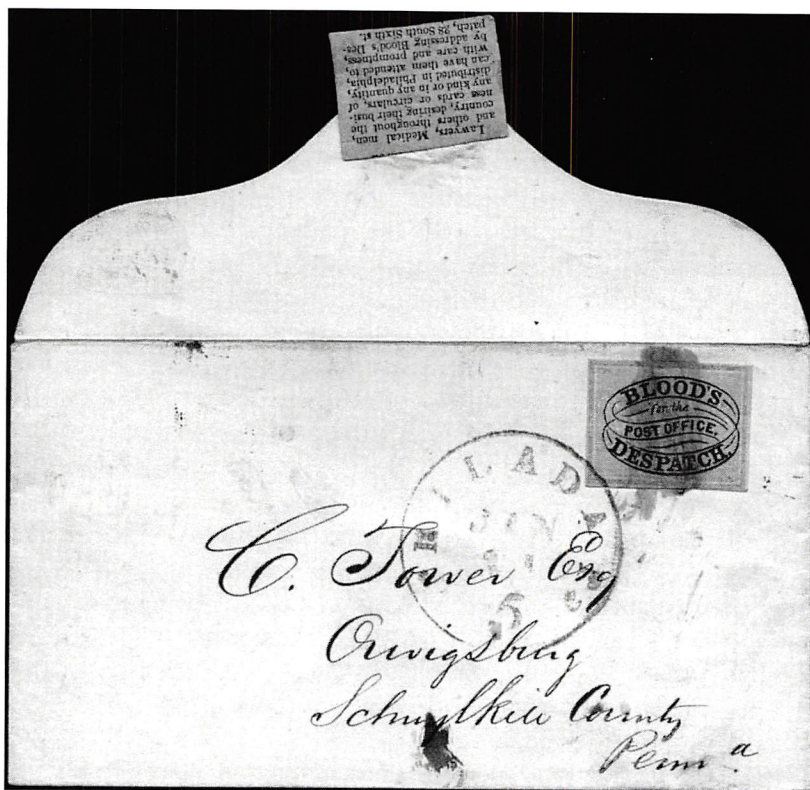 Lawyers, Medical men,
and others throughout the
country, desiring their busi-
ness cards or circulars, of
any kind or in any quantity,
distributed in Philadelphia,
can have them attended to,
with care and promptness,
by addressing Blood's Des-
patch, 28 South Sixth st.
BLOOD'S
for the
POST OFFICE.
DESPATCH.
JUN
5
C. Tower Esq
Orwigsburg
Schuylkill County
Penn a